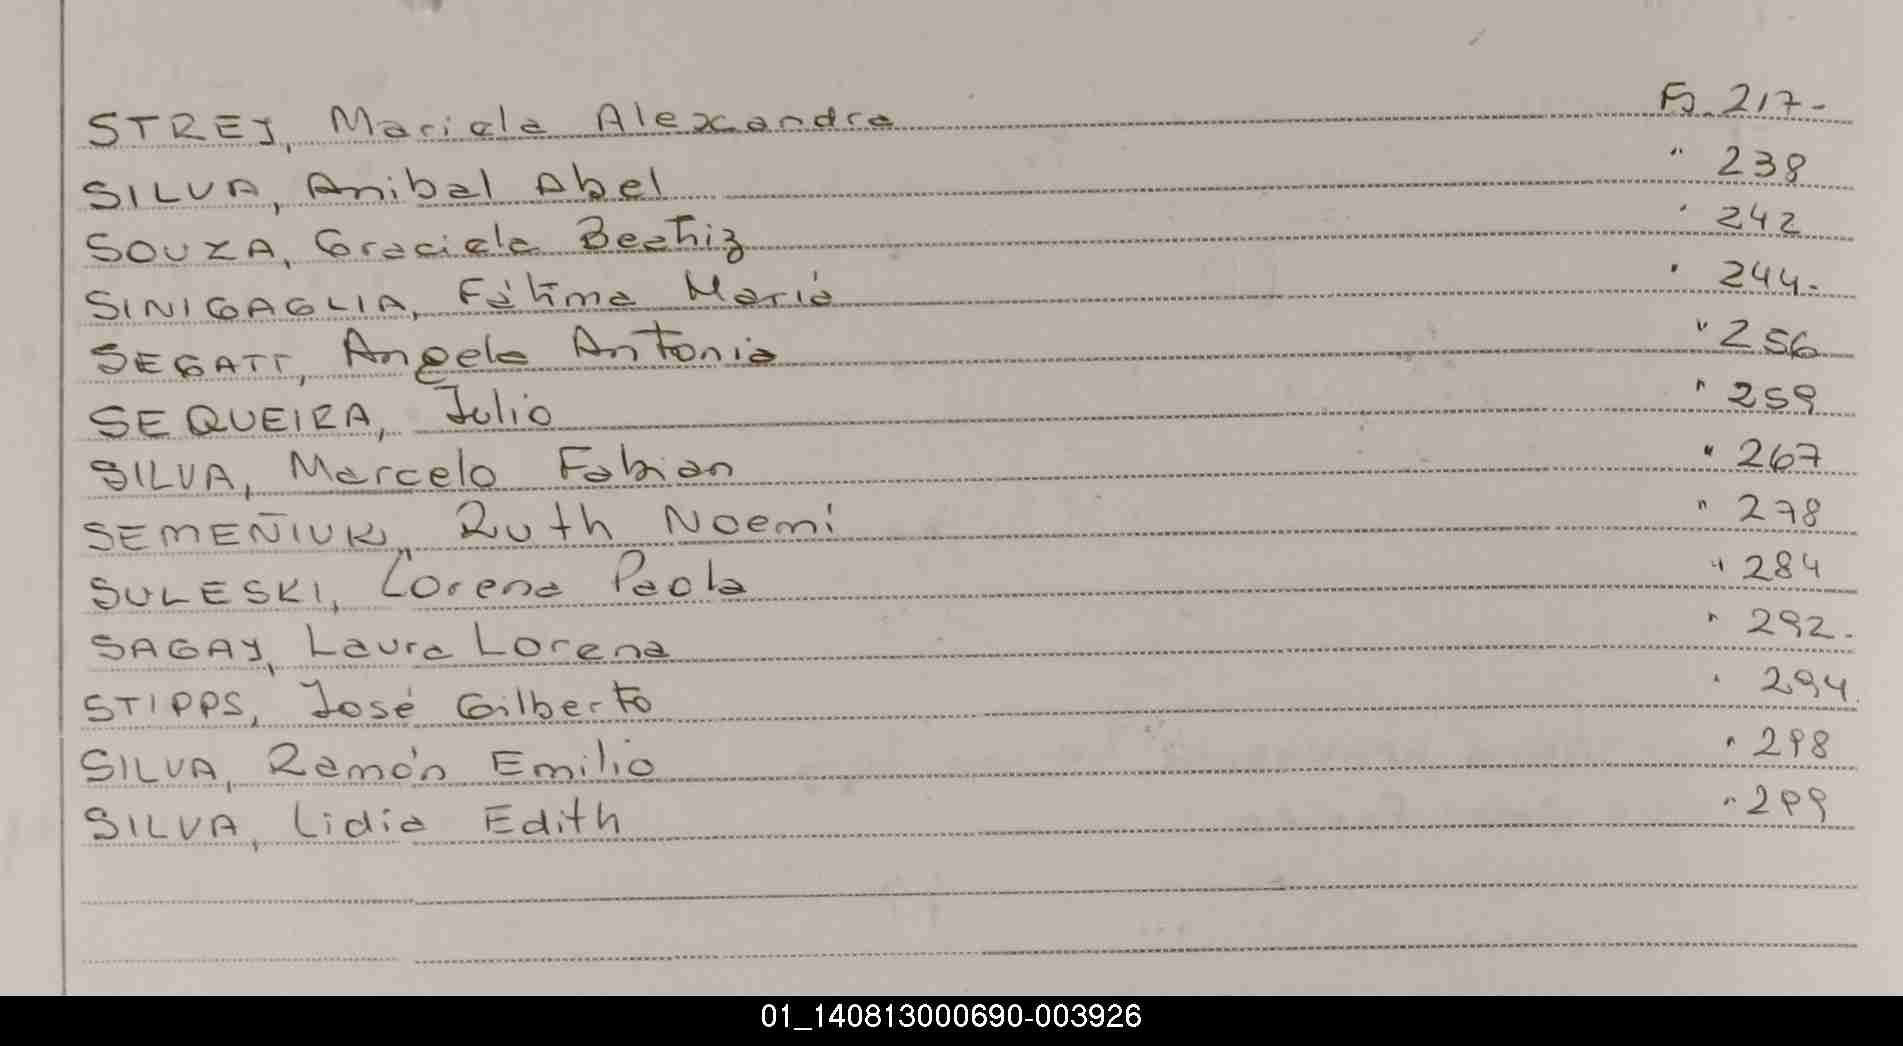 STREJ, Mariela Alexandra Fs. 217-
SILVA, Anibal Abel " 238
SOUZA, Graciela Beatriz ' 242
SINIGAGLIA, Fátima María ' 244.
SEGATT, Angela Antonia " 256
SEQUEIRA, Julio " 259
SILVA, Marcelo Fabian " 267
SEMEÑIUK, Ruth Noemí " 278
SULESKI, Lorena Paola " 284
SAGAY, Laura Lorena " 292.
STIPPS, José Gilberto ' 294.
SILVA, Ramón Emilio " 298
SILVA, Lidia Edith " 299
01_140813000690-003926